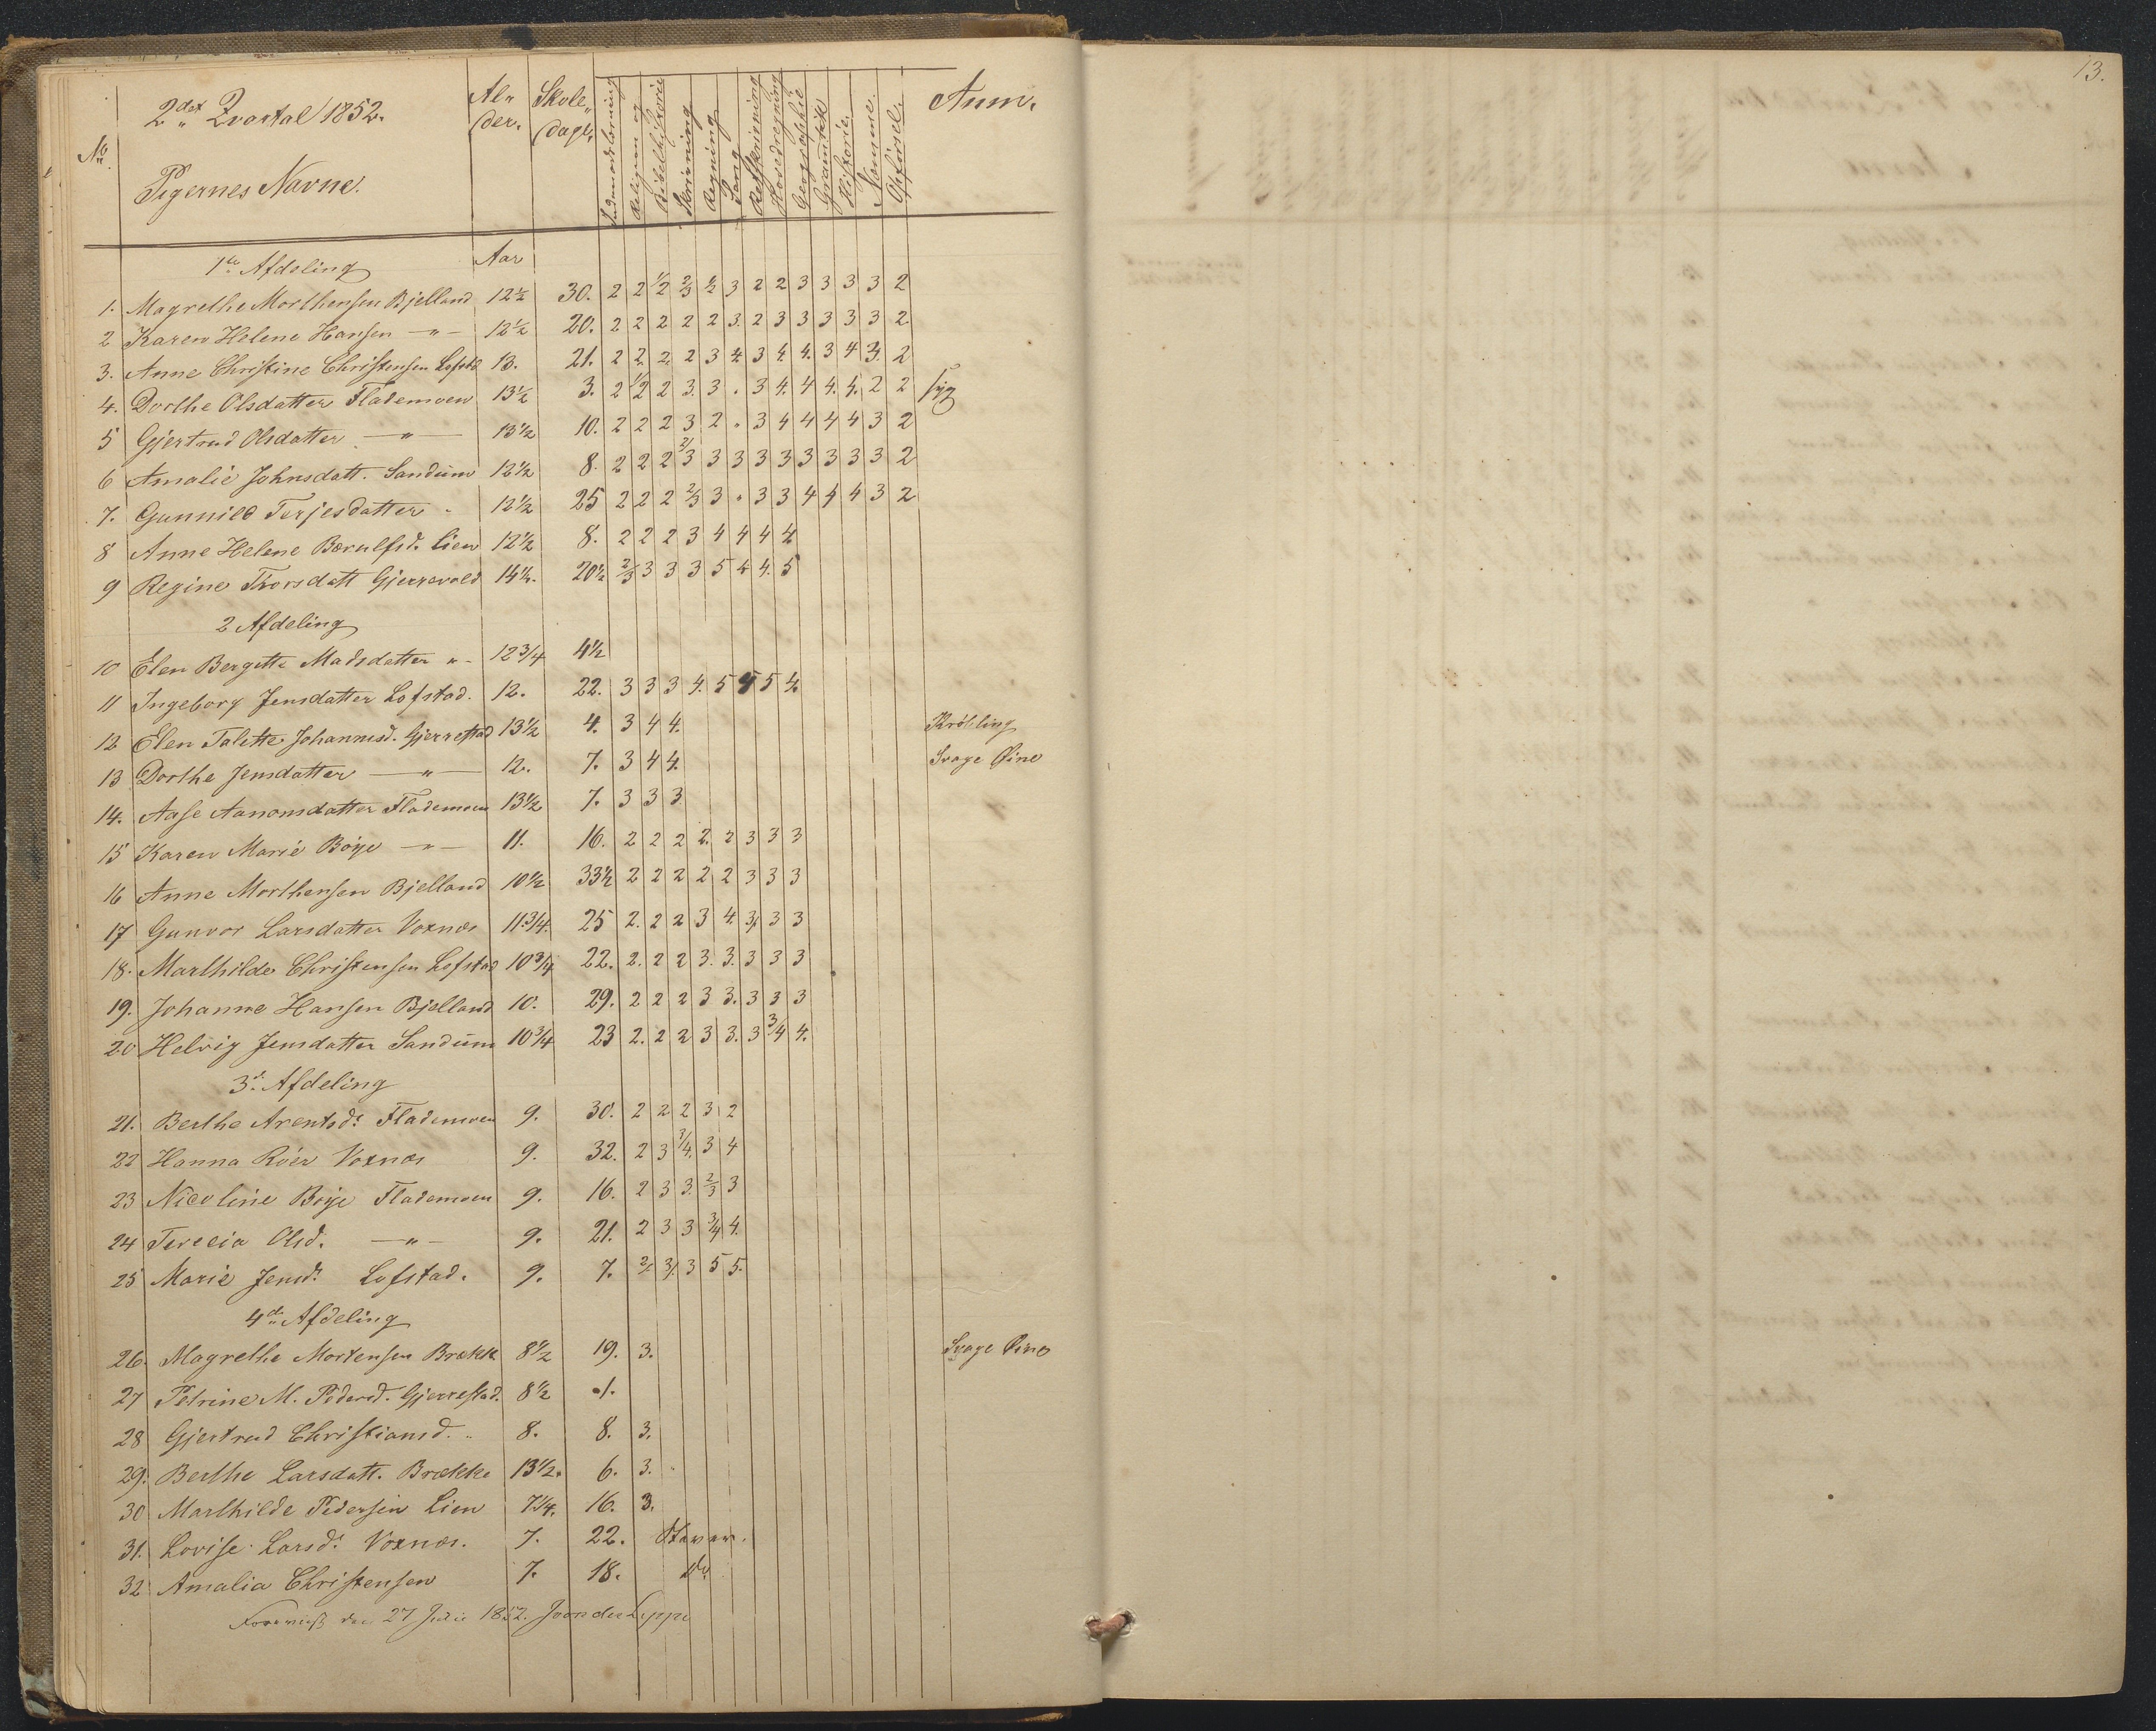 13.
2det Qvartal 1852.
No
Pigernes Navne.
Al- der.
Skole- dage.
Indenadslæsning
Religion og
Bibelhistorie
Skrivning
Regning
Sang
Retskrivning
Hovedregning
Geographie
Gramtik
Historie.
Nemme.
Opførsel.
Anm.
1te Afdeling Aar
1. Magrethe Morthensen Bjelland 12½ 30. 2 2 1/2 2/3 ½ 3 2 2 3 3 3 3 2
2 Karen Helene Hansen —"— 12½ 20. 2 2 2 2 2 3. 2 3 3 3 3 3 2
3. Anne Christine Christensen Lofsta 13. 21. 2 2 2 2 3 4 3 4 4. 3 4 3. 2
4. Dorthe Olsdatter Flademoen 13½ 3. 2 1/2 2 3. 3 . 3 4. 4 4. 4. 2 2 syg
5 Gjertrud Olsdatter —"— 13½ 10. 2 2 2 3 2 . 3 4 4 4 4 3 2
6 Amalie Johnsdatt. Sandum 12½ 8. 2 2 2 2/3 3 3 3 3 3 3 3 3 2
7. Gunnild Terjesdatter " 12½ 25 2 2 2 2/3 3 . 3 3 4 4 4 3 2
8 Anne Helene Bærulfsd. Lien 12½ 8. 2 2 2 3 4 4 4 4
9 Regine Thorsdatt Gjerrevold 14¼. 20½ 2/3 3 3 3 5 4 4. 5
2 Afdeling
10 Elen Bergitte Madsdatter "- 12 3/4 4½
11 Ingeborg Jensdatter Lofstad. 12. 22. 3 3 3 4. 5 5 5 4.
12 Elen Talette Johannsd. Gjerrestad 13½ 4. 3 4 4. Krøbling
13 Dorthe Jensdatter —"— 12. 7. 3 4 4. Svage Øine
14. Aase Aanonsdatter Flademoen 13½ 7. 3 3 3
15 Karen Marie Böye —"— 11. 16. 2 2 2 2. 2 3 3 3
16 Anne Morthensen Bjelland 10½ 33½ 2 2 2 2 2 3 3 3
17 Gunvor Larsdatter Voxnæs 11.3/4. 25 2. 2 2 3 4. 3/. 3 3
18. Marthilde Christensen Lofstad 10 3/4 22. 2. 2 2 3. 3. 3 3 3
19. Johanne Hansen Bjelland 10. 29. 2 2 2 3 3. 3 3 3
20 Helvig Jensdatter Sandum 10 3/4 23 2. 2 2 3 3. 3 3/4 4.
3die Afdeling
21. Berthe Arentsdt Flademoen 9. 30. 2 2 2 3 2
22 Hanna Röer Voxnæs 9. 32. 2 3 3/4. 3 4
23 Nicoline Böye Flademoen 9. 16. 2 3 3. 2/3 3
24 Terecia Olsd. —"— 9. 21. 2 3 3 3/4 4.
25 Marie Jensdt Lofstad. 9. 7. 2/. 3/. 3 5 5.
4de Afdeling
26. Magrethe Mortensen Brække 8½ 19. 3. Svage Øine
27 Petrine M. Pedersd. Gjerrestad. 8½ ./.
28 Gjertrud Christiansd. " 8. 8. 3.
29. Berthe Larsdatt. Brække 13½. 6. 3.
30 Marthilde Pedersen Lien 7¼. 16. 3.
31. Lovise Larsdt Voxnæs. 7. 22. Staver.
32 Amalia Christensen 7. 18. do
den 27 Julii 1852.